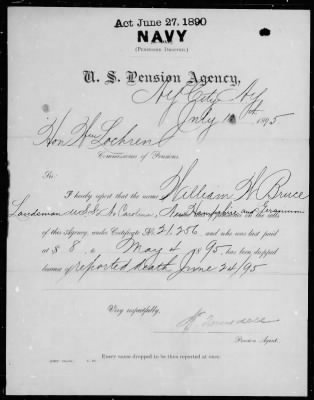 Act June 27, 1890
NAVY
(PENSIONER DROPPED.)
U. S. Pension Agency,
N.Y. City N.Y.
July 10th 1895
Hon Wm Lochren
Commissioner of Pensions.
SIR:
I hereby report that the name William H. Bruce
Landsman U.S.S. No Carolina, New Hampshire and Geranium
of this Agency, under Certificate No. 21,256, and who was last paid
at $ 8, to May 4 1895, has been dropped
because of reported death June 24/95
Very respectfully,
Pension Agent.
Every name dropped to be thus reported at once.